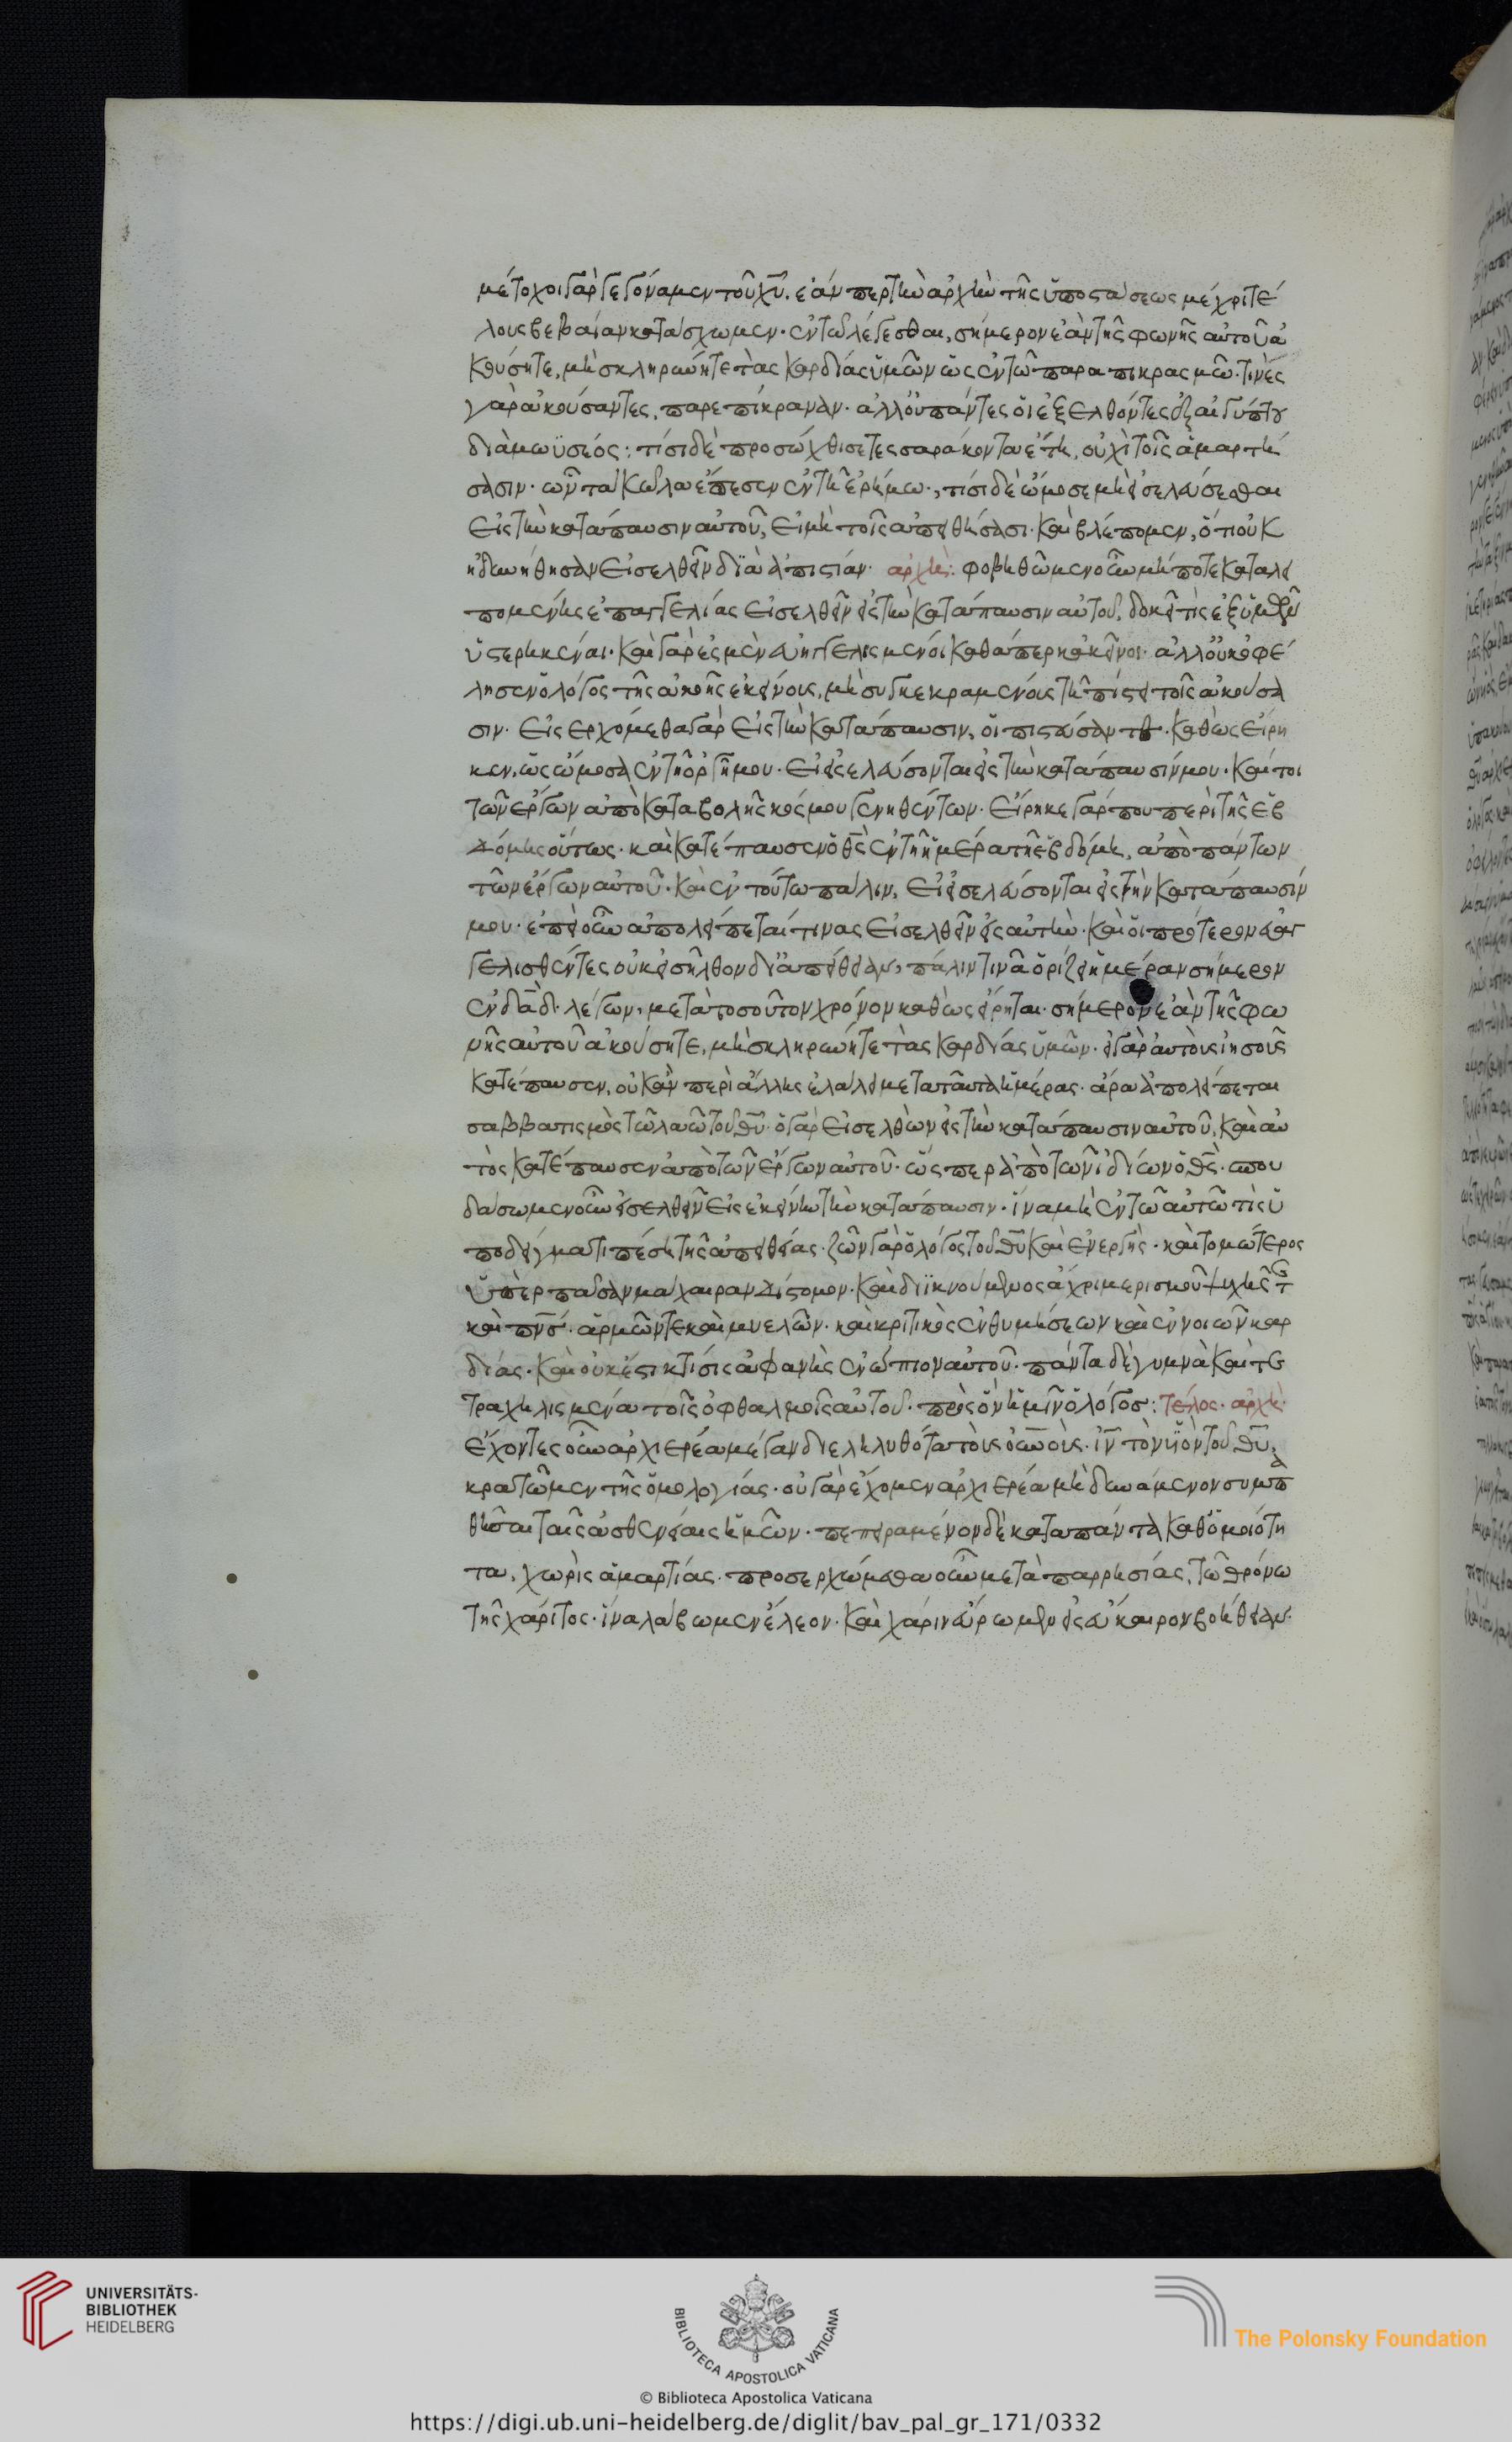 μέτοχοι γὰρ γεγόναμεν τοῦ χυ. ἐάν περ τὴν ἀρχὴν τῆς ὑποστάσεως μέχρι τέ
λους βεβαίαν κατάσχωμεν· ἐν τῶ λέγεσθαι, σήμερον ἐὰν τῆς φωνῆς αὐτοῦ ἀ
κούσητε, μὴ σκληρύνητε τὰς καρδίας ὑμῶν ὡς ἐν τῶ παραπικρασμῶ· τινὲς
γὰρ ἀκούσαντες, παρεπίκραναν· ἀλλ' οὐ πάντες οἱ ἐξελθόντες ἐξ αἰγύπτου
διὰ μωϋσέος: τίσι δὲ προσώχθισε τεσσαράκοντα ἔτη, οὐχὶ τοῖς ἁμαρτή
σασιν· ὧν τὰ κῶλα ἔπεσεν ἐν τῆ ἐρήμω·, τίσι δὲ ὤμοσε μὴ εἰσελεύσεσθαι
εἰς τὴν κατάπαυσιν αὐτοῦ, εἰ μὴ τοῖς ἀπειθήσασι· καὶ βλέπομεν, ὅτι οὐκ
ἠδυνήθησαν εἰσελθεῖν δϊὰ ἀπιστίαν· ἀρχὴ: φοβηθῶμεν οὖν μήποτε καταλει
πομένης ἐπαγγελίας εἰσελθεῖν εἰς τὴν κατάπαυσιν αὐτοῦ, δοκεῖ τὶς ἐξ ὑμῶν
ὑστερηκέναι· καὶ γάρ ἐσμὲν εὐηγγελισμένοι καθάπερ κἀκεῖνοι· ἀλλ' οὐκ ὀφέ
λησεν ὁ λόγος τῆς ἀκοῆς ἐκείνοις, μὴ συγκεκραμένοις τῆ πίστει τοῖς ἀκούσα
σιν· εἰσερχόμεθα γὰρ εἰς τὴν κατάπαυσιν, οἱ πιστεύσαντες· καθὼς εἴρη
κεν, ὡς ὤμοσα ἐν τῆ ὀργῆ μου· εἰ εἰσελεύσονται εἰς τὴν κατάπαυσίν μου· καί τοι
τῶν ἔργων ἀπὸ καταβολῆς κόσμου γενηθέντων· εἴρηκε γάρ που περὶ τῆς ἑβ
δόμης οὕτως· καὶ κατέπαυσεν ὁ θς ἐν τῆ ἡμέρα τῆ ἑβδόμη, ἀπὸ πάντων
τῶν ἔργων αὐτοῦ· καὶ ἐν τούτω πάλιν, εἰ εἰσελεύσονται εἰς τὴν κατάπαυσίν
μου· ἐπεὶ οὖν ἀπολείπεται τινας εἰσελθεῖν εἰς αὐτὴν· καὶ οἱ πρότερον εὐαγ
γελισθέντες οὐκ εἰσῆλθον δι' ἀπείθειαν, πάλιν τινὰ ὁρίζει ἡμέραν σήμερον
ἐν δαδ· λέγων, μετὰ τοσοῦτον χρόνον καθὼς εἴρηται· σήμερον ἐὰν τῆς φω
νῆς αὐτοῦ ἀκούσητε, μὴ σκληρύνητε τὰς καρδίας ὑμῶν· εἰ γὰρ αὐτοὺς ἰησοῦς
κατέπαυσεν, οὐκ ἂν περὶ ἄλλης ἐλάλει μετὰ ταῦτα ἡμέρας· ἄρα ἀπολείπεται
σαββατισμὸς τῶ λαῶ τοῦ θυ· ὁ γὰρ εἰσελθὼν εἰς τὴν κατάπαυσιν αὐτοῦ, καὶ αὐ
τὸς κατέπαυσεν ἀπὸ τῶν ἔργων αὐτοῦ· ὥσπερ ἀπὸ τῶν ἰδίων ὁ θς· σπου
δάσωμεν οὖν εἰσελθεῖν εἰς ἐκείνην τὴν κατάπαυσιν· ἵνα μὴ ἐν τῶ αὐτῶ τὶς ὑ
ποδείγματι πέση τῆς ἀπειθείας· ζῶν γὰρ ὁ λόγος τοῦ θυ καὶ ἐνεργὴς· καὶ τομώτερος
ὑπὲρ πᾶσαν μάχαιραν δίστομον· καὶ διϊκνούμενος ἄχρι μερισμοῦ ψυχῆς τε
καὶ πνς· ἁρμῶν τε καὶ μυελῶν· καὶ κριτικὸς ἐνθυμήσεων καὶ ἐννοιῶν καρ
δίας· καὶ οὐκ ἔστι κτίσις ἀφανὴς ἐνώπιον αὐτοῦ· πάντα δὲ γυμνὰ καὶ τε
τραχηλισμένα τοῖς ὀφθαλμοῖς αὐτοῦ· πρὸς ὃν ἡμῖν ὁ λόγος: τέλος· ἀρχὴ·
ἔχοντες οὖν ἀρχιερέα μέγαν διεληλυθότα τοὺς οὐνοὺς· ἰν τὸν υἱὸν τοῦ θυ,
κρατῶμεν τῆς ὁμολογίας· οὐ γὰρ ἔχομεν ἀρχιερέα μὴ δυνάμενον συμπα
θῆσαι ταῖς ἀσθενείαις ἡμῶν· πεπειραμένον δὲ κατὰ πάντα καθ' ὁμοιότη
τα, χωρὶς ἁμαρτίας· προσερχώμεθα οὖν μετὰ παρρησίας, τῶ θρόνω
τῆς χάριτος· ἵνα λάβωμεν ἔλεον· καὶ χάριν εὕρωμεν εἰς εὔκαιρον βοήθειαν·
UNIVERSITÄTS-
BIBLIOTHEK
HEIDELBERG
BIBLIOTECA APOSTOLICA VATICANA
The Polonsky Foundation
© Biblioteca Apostolica Vaticana
https://digi.ub.uni-heidelberg.de/diglit/bav_pal_gr_171/0332